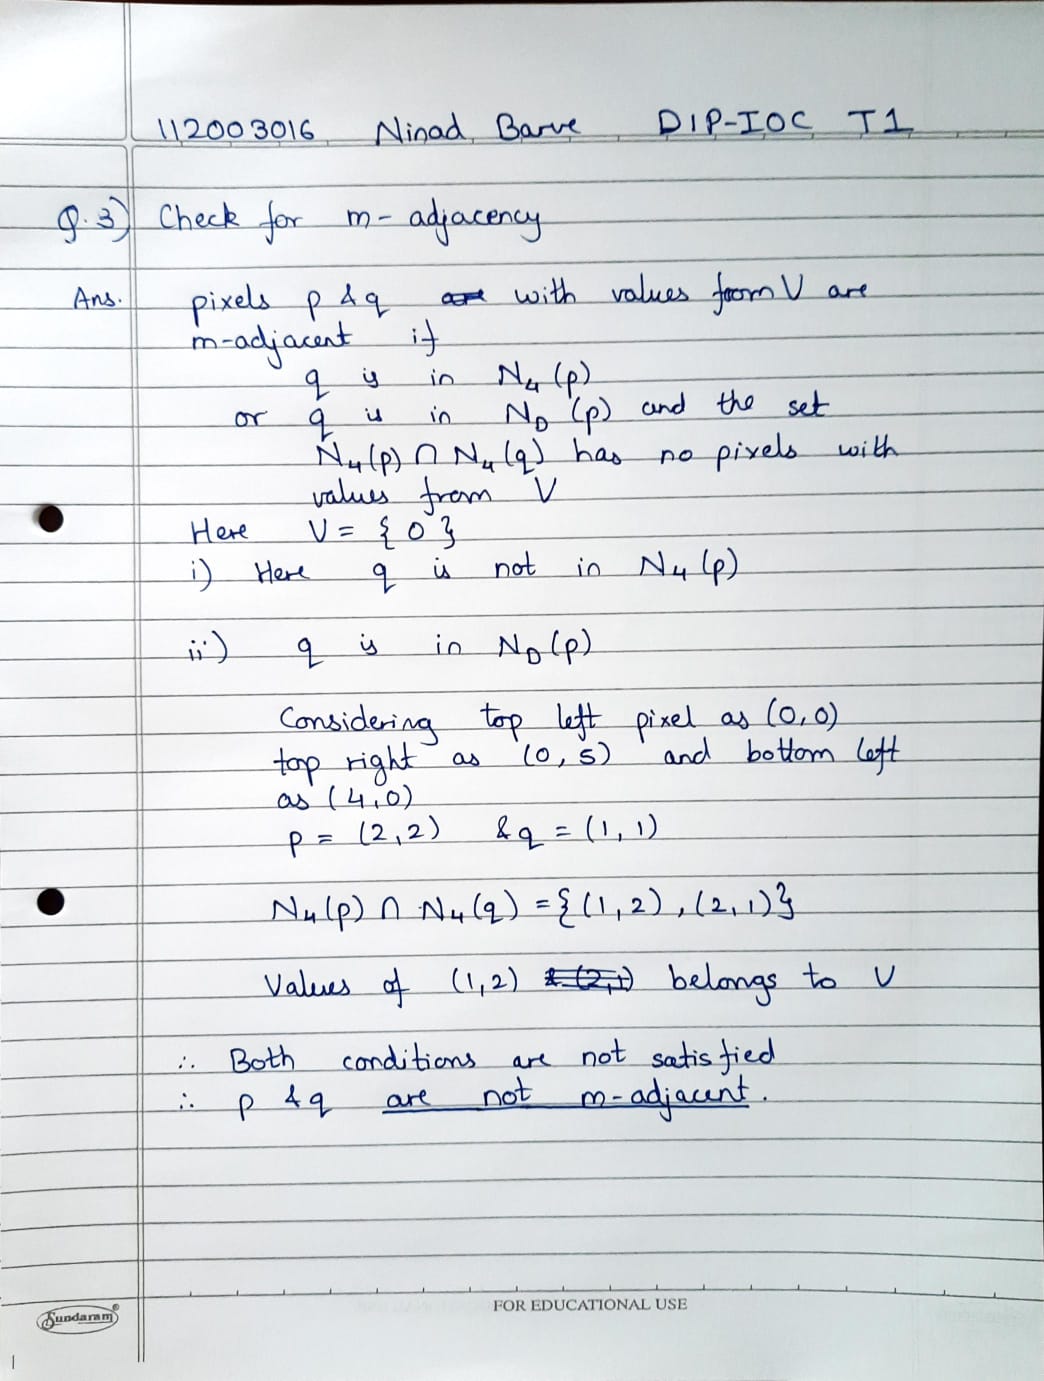 112003016 Ninad Barve DIP-IOC T1
Q.3) Check for m-adjacency
Ans. pixels p & q with values from V are
m-adjacent if
q is in N4(p)
or q is in ND(p) and the set
N4(p) ∩ N4(q) has no pixels with
values from V
Here V = {0}
i) Here q is not in N4(p)
ii) q is in ND(p)
Considering top left pixel as (0,0)
top right as (0,5) and bottom left
as (4,0)
p = (2,2) & q = (1,1)
N4(p) ∩ N4(q) = {(1,2), (2,1)}
Values of (1,2) belongs to V
∴ Both conditions are not satisfied
∴ p & q are not m-adjacent.
FOR EDUCATIONAL USE
Sundaram®